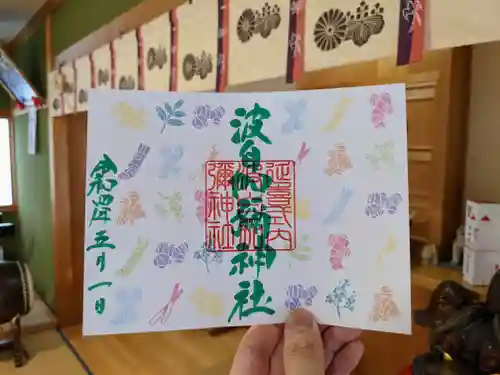 波自加彌神社
延喜式内
波自加
彌神社
五月一日